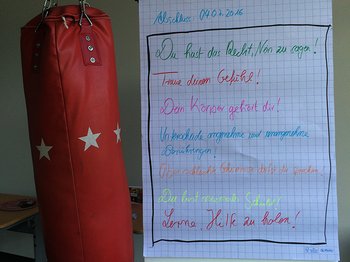 Abschluss: 04.02.2016
Du hast das Recht, Nein zu sagen!
Traue deinem Gefühl!
Dein Körper gehört dir!
Unterscheide angenehme und unangenehme
Berührungen!
schlechte Geheimnisse darfst du
Du bist
Lerne, Hilfe zu holen!